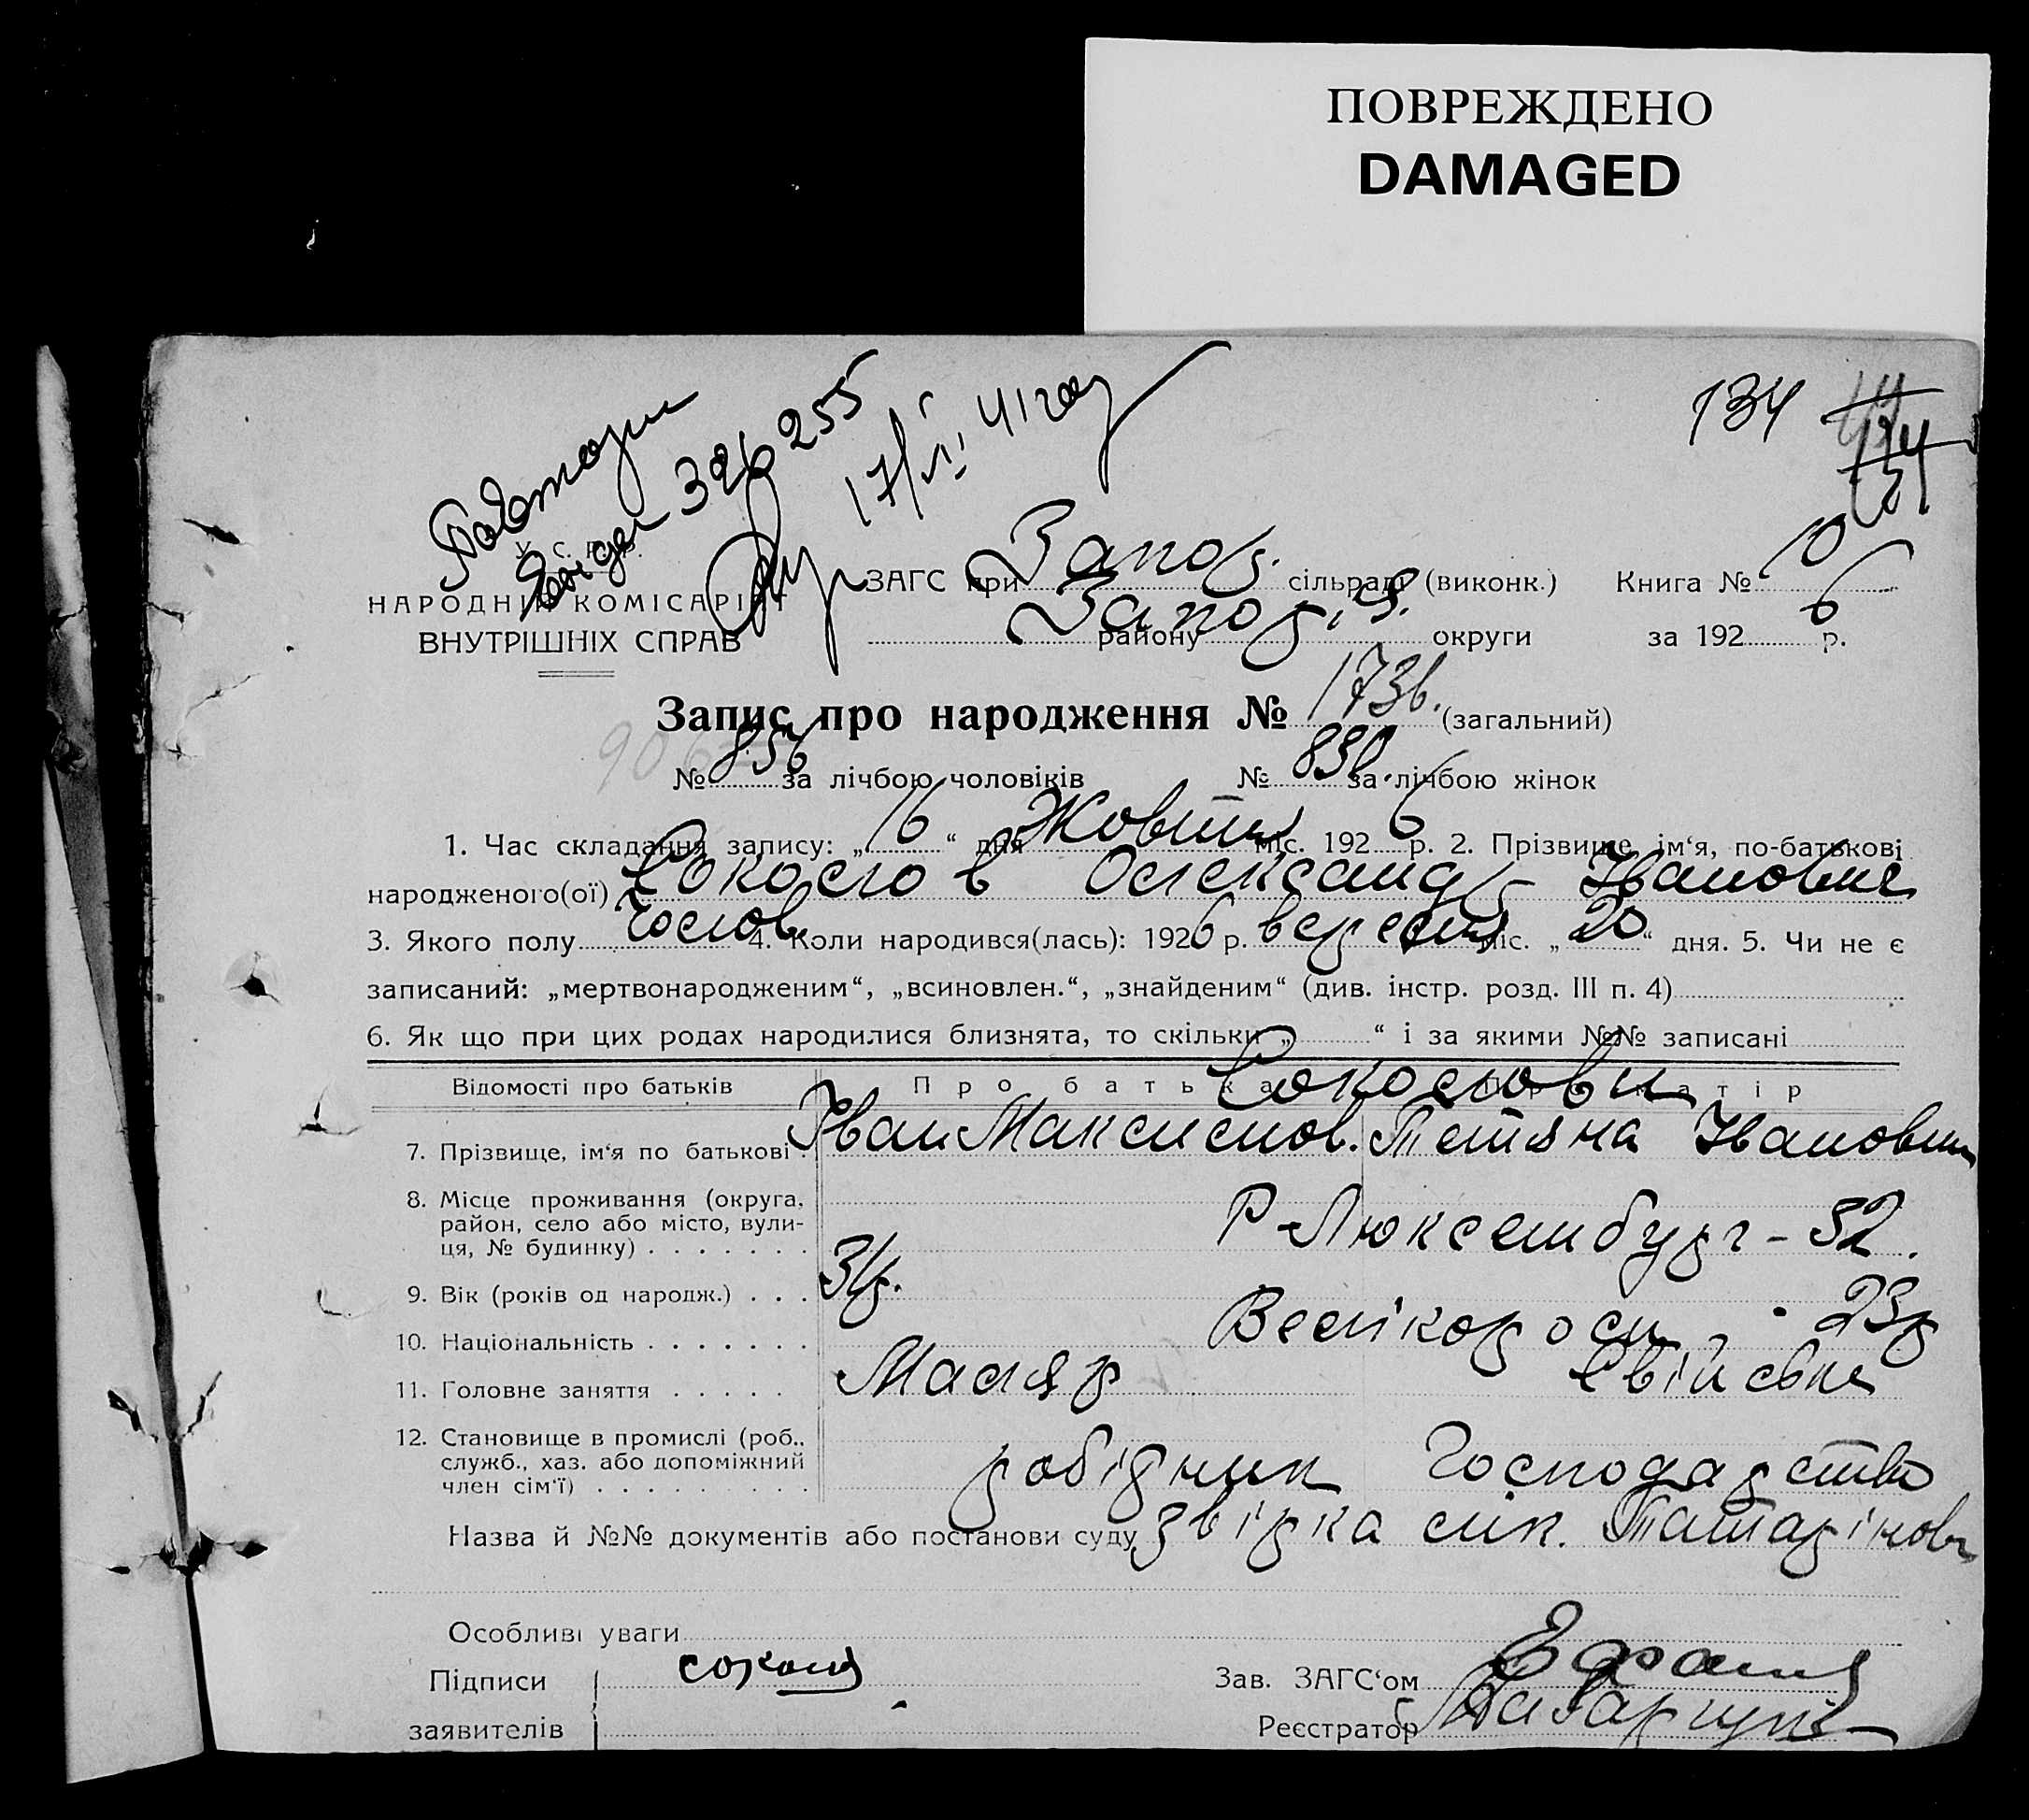 ПОВРЕЖДЕНО
DAMAGED
255
17/VI 41 году
134
У. С. Р. Р.
НАРОДНІЙ КОМІСАРІЯТ
ВНУТРІШНІХ СПРАВ
ЗАГС при Запор. сільраді (виконк.) Книга № 10
району Запоріз. округи за 1926 р.
Запис про народження № 1736. (загальний)
906
№ 856 за лічбою чоловіків № 830. за лічбою жінок
1. Час складання запису: „16“ дня Жовтня міс. 1926 р. 2. Прізвище, ім‘я, по-батькові
народженого(ої) Соколов Олександр Іванович
3. Якого полу Чолов. 4. Коли народився(лась): 1926 р. вересня міс. „20“ дня. 5. Чи не є
записаний: „мертвонародженим“, „всиновлен.“, „знайденим“ (див. інстр. розд. III п. 4)
6. Як що при цих родах народилися близнята, то скільки „ “ і за якими №№ записані
Відомості про батьків Про батька Про матір
Соколови
7. Прізвище, ім‘я по батькові . Іван Максимов. Тетяна Івановна
8. Місце проживання (округа, район, село або місто, вули-ця, № будинку) Р-Люксембург-52.
9. Вік (років од народж.) 31р. 23р
10. Національність Велікороси
11. Головне заняття Маляр Свійське
12. Становище в промислі (роб., служб., хаз. або допоміжний член сім‘ї) робітник Господарство
Назва й №№ документів або постанови суду звірка
Особливі уваги
Підписи
заявителів
Зав. ЗАГС‘ом
Реєстратор